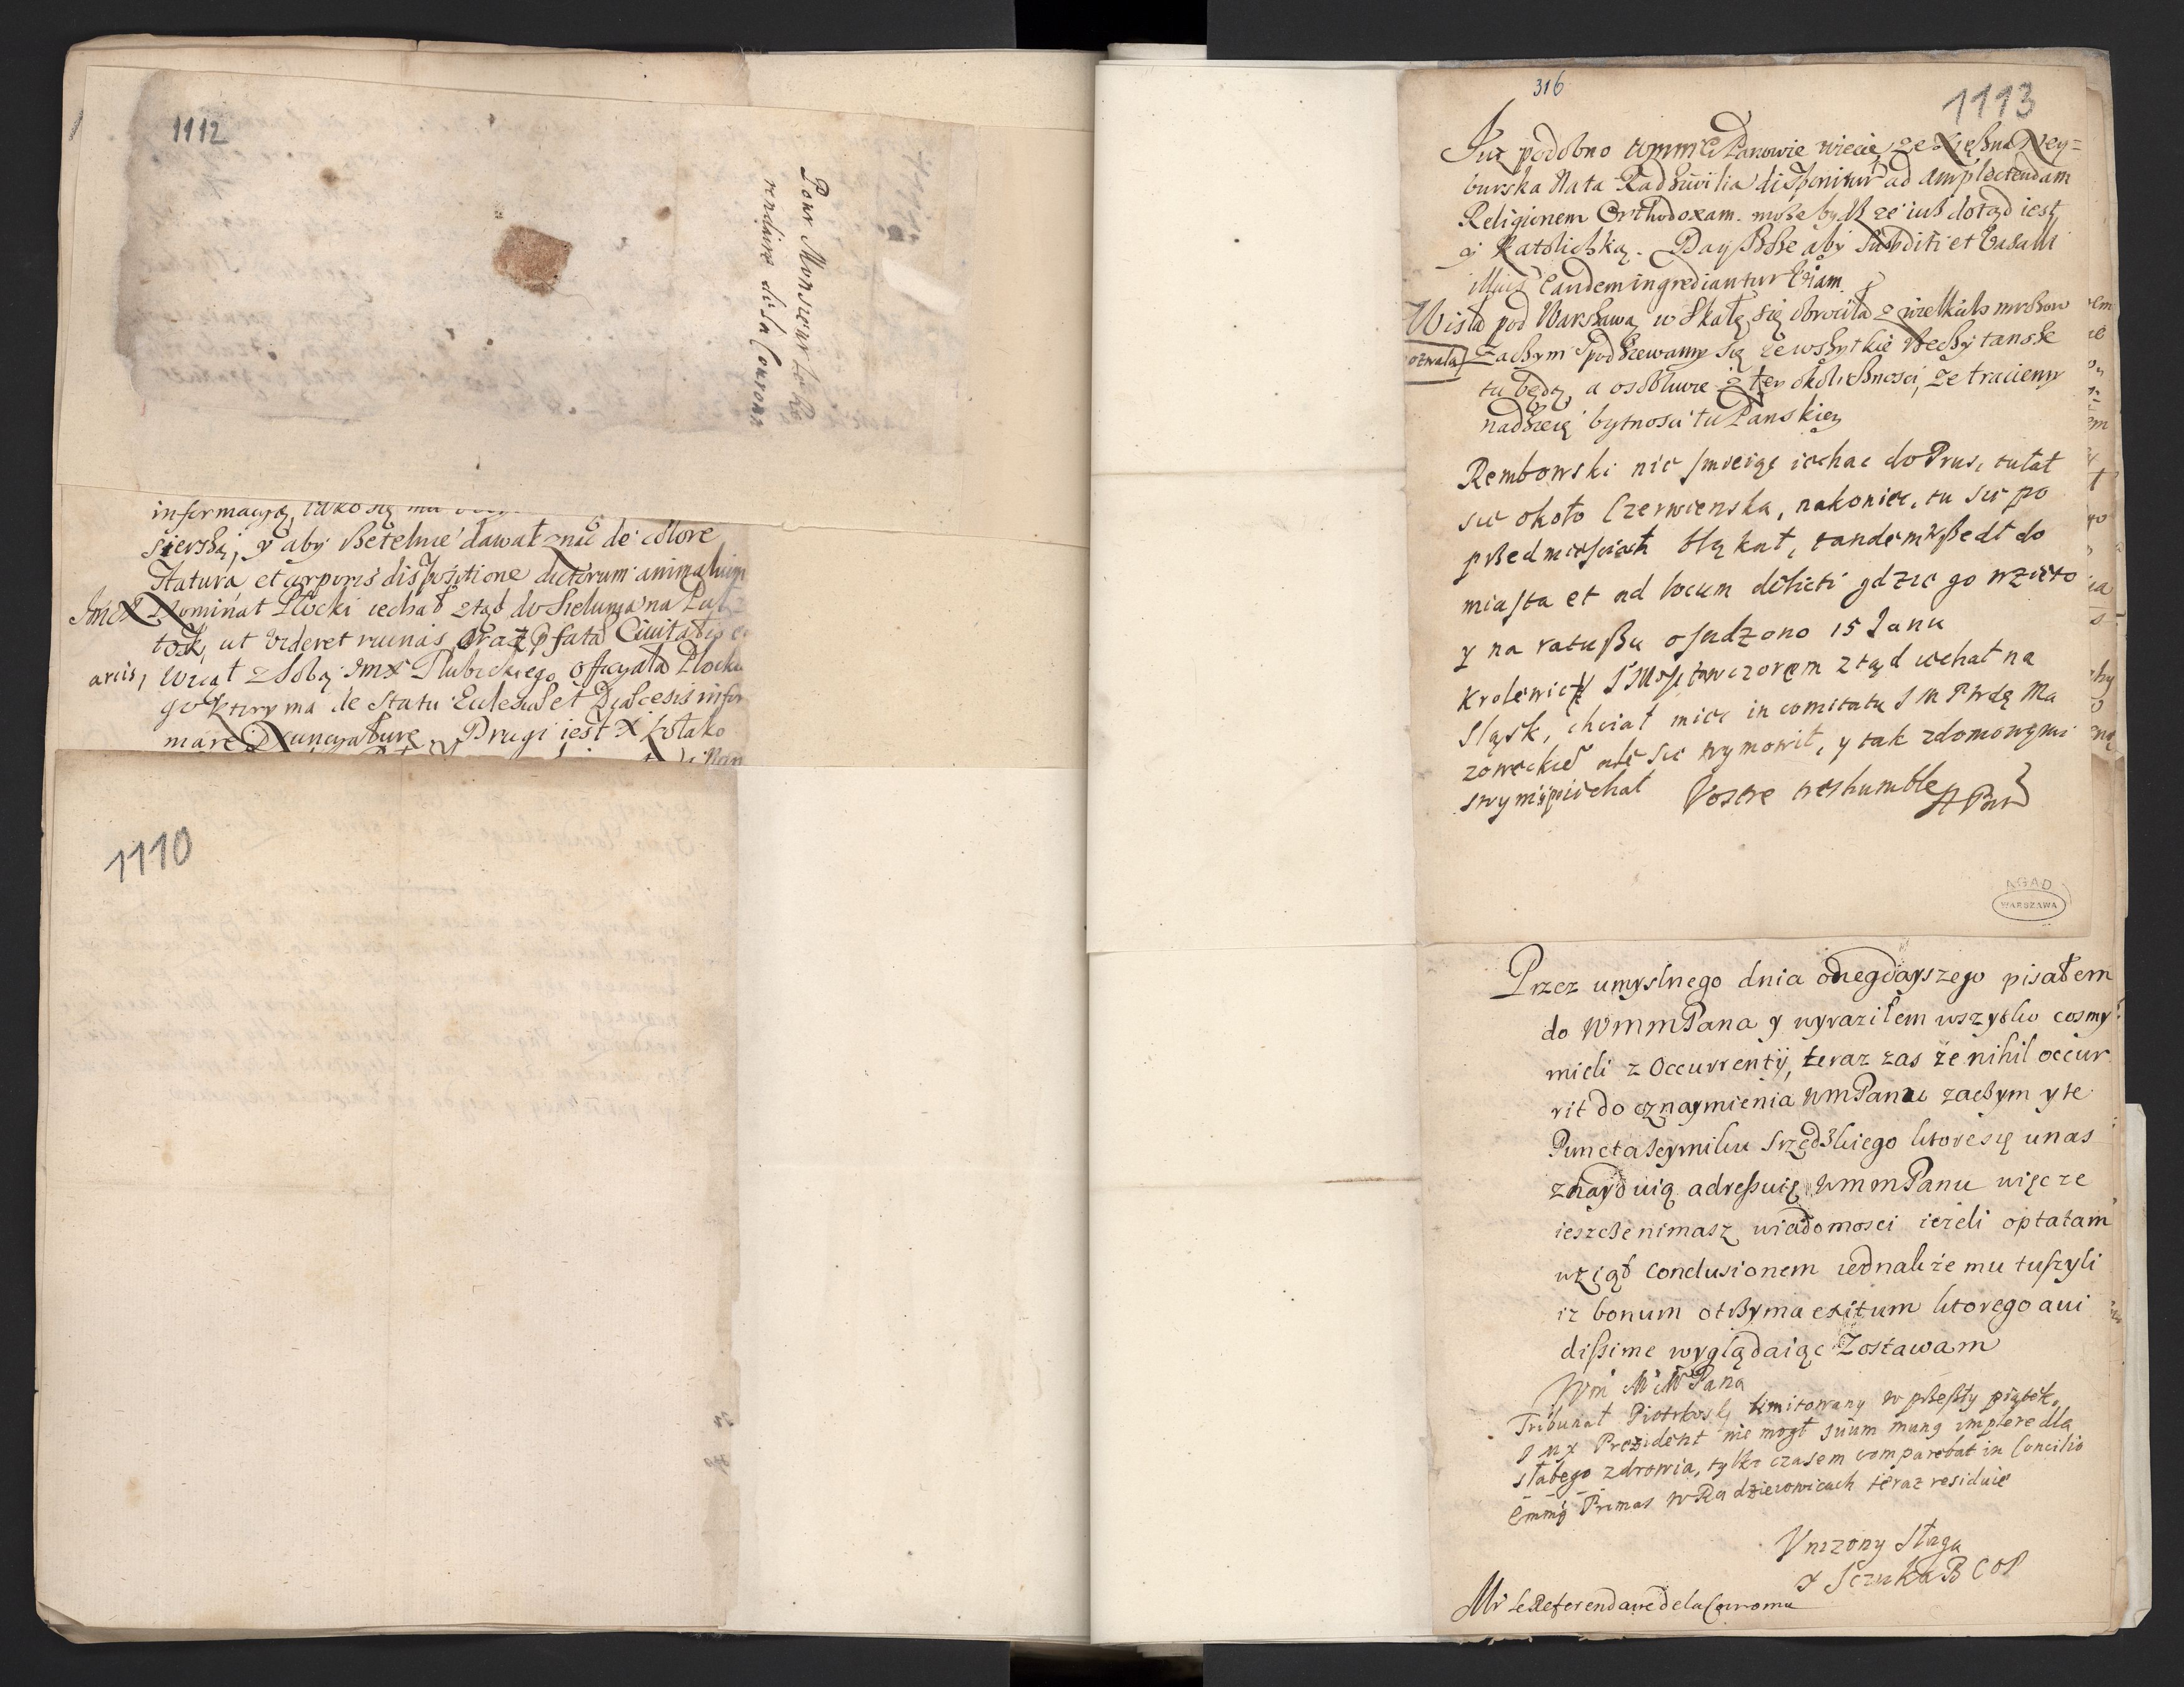 1112
Pour Monsieur le Re
rendaire de la Couronne
informacyą, iako się ma
sierszą, y aby rzetelnie dawał znać de colore
statura et corporis dispositione dictorum animalium
Jmć X Nominat Płocki iechał ztąd do Sieluna na Puł
tosk, ut videret ruinas oraz fata Civitatis
arcis, wziął z sobą Jmx Płubickiego officyała Płocki
go ktory ma de statu Ecclesiae et Diaecesis infor
mare Nuncyaturę. Drugi iest X
1110
316
1113
Juz podobno wmmć Panowie wiecie, ze Xięzna Ney=
burska Nata Radziwilia disponitur ad amplectendam
Religionem Orthodoxam. może bydz ze iuz dotąd iest
y Katoliczką. Day Boze aby subditi et Vasalli
illius eandem ingrediantur viam
Wisła pod Warszawą w skałę się obrociła z wielkich mrozow
zaczym spodziewamy się ze wszytkie rzeczy tansze
tu będą, a osobliwie z tey okolicznosci, że traciemy
nadzieię bytnosci tu Panskiey
Rembowski nie smieiąc iechac do Prus, tułał
się około Czerwienska, nakoniec, tu się po
przedmiesciach błąkał, tandem wszedł do
miasta et ad locum delicti gdzie go wzięto
y na ratuszu osądzono 15 Janu
Krolewicz J Mosc wczorem ztąd iechał na
Sląsk, chciał miec in comitatu J M P Wdę Ma
zowieckie ale się wymowił, y tak z domowymi
swymi poiechał Vostre treshumble
AGAD
WARSZAWA
Przez umyslnego dnia onegdayszego pisałem
do WmmPana y wyraziłem wszytko cosmy
mieli z Occurrentij, teraz zas że nihil occur
rit do oznaymienia WmPanu zaczym y te
Puncta Seymiku Srzedzkiego ktore się u nas
znayduią adressuię WmmPanu więc ze
ieszcze nimasz wiadomosci ieżeli optatam
wziął conclusionem iednakże mu tuszyli
iz bonum otrzyma exitum ktorego aui
dissime wyglądaiąc Zostawam
Wm M M Pana
Tribunał Piotrkoski limitowany w przeszły piątek.
J M X Prezident nie mogł suum munq implere dla
słabego zdrowia, tylko czasem comparebat in Concilio
Emmq Primas w Radzieiowicach teraz residuie
Vnizony Sługa
X Sczuka B C O P
Mr le Referendaire de la Couronne